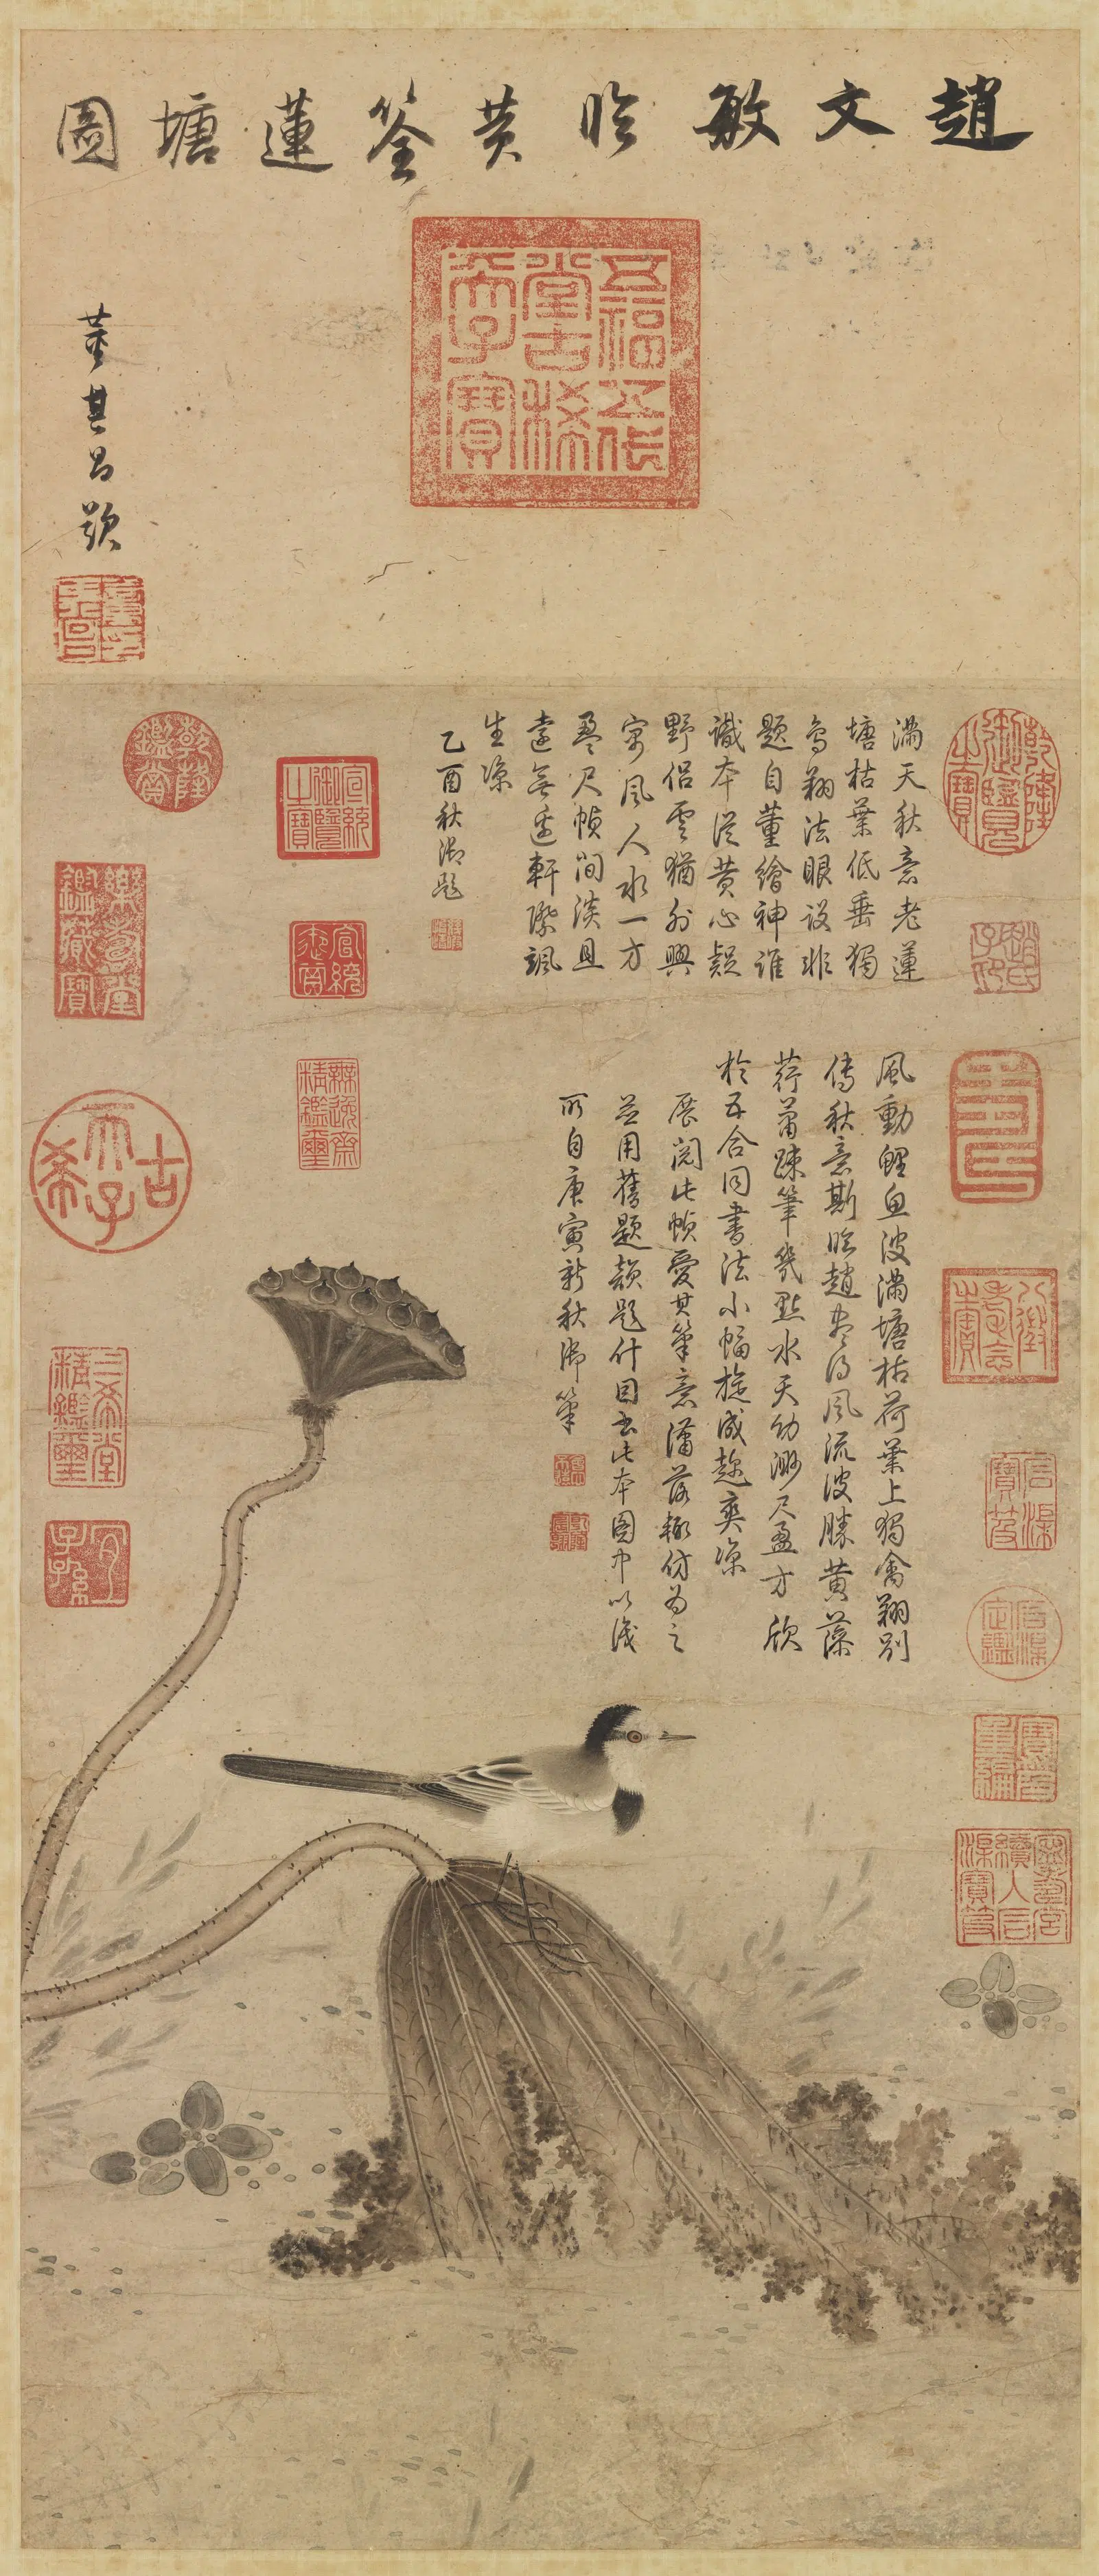 趙文敏臨黄筌蓮塘圖
董其昌題
五福五代堂古稀天子寶
滿天秋意老蓮
塘枯葉低垂獨
鳥翔法眼設非
題自董繪神誰
識本從黄心疑
野侣雲猶外興
寓風人水一方
盈尺幀間淡且
遠無邊軒際颯
生凉
乙酉秋御題
風動鯉魚波滿塘枯荷葉上獨禽翔別
傳秋意斯臨趙尽得風流彼勝黄藻
荇蕭踈筆幾點水天幼渺尺盈方欣
於五合同書法小幅旋成趣爽凉
展閲此幀愛其筆意瀟落輒仿為之
並用舊題韻題什因書此本圖中以識
所自庚寅新秋御筆
乾隆御覽之寶
趙氏子昂
八徵耄念之寶
石渠寶笈
石渠定鑑
寶笈重編
寧壽宮續入石渠寶笈
乾隆鑑賞
樂壽堂鑑藏寶
古希天子
三希堂精鑑璽
宜子孫
宣統御覽之寶
宣統鑑賞
無逸齋精鑑璽